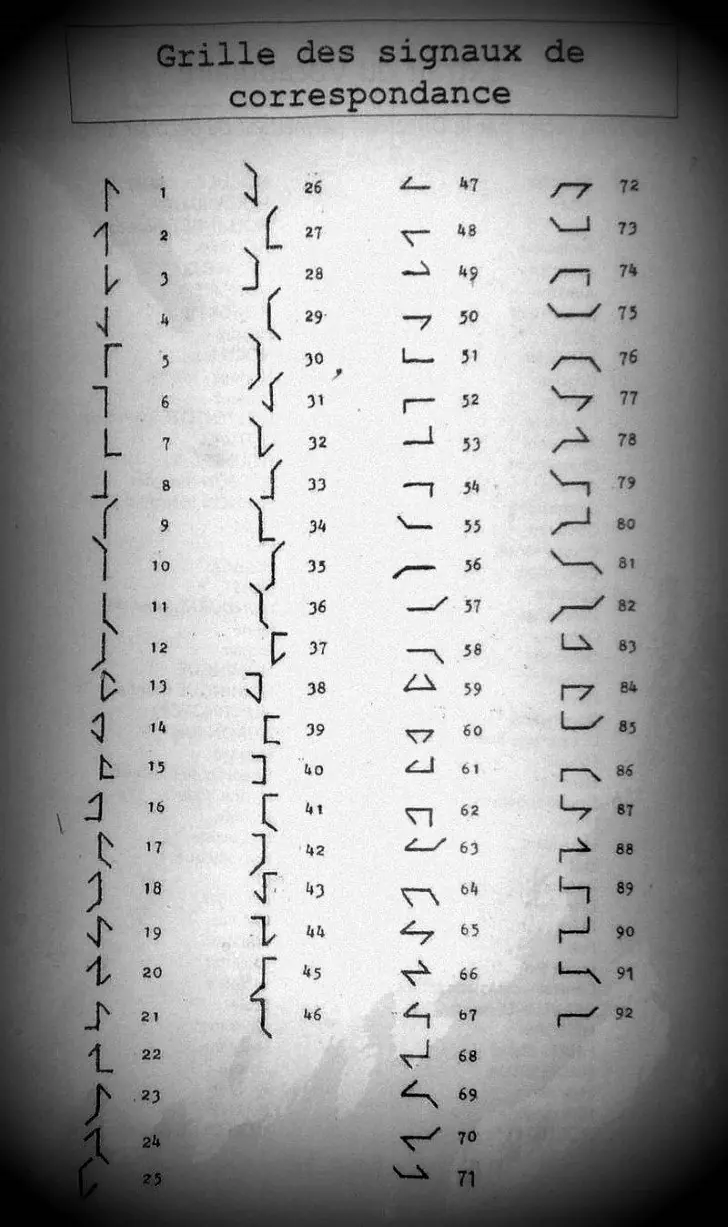 Grille des signaux de
correspondance
1
2
3
4
5
6
7
8
9
10
11
12
13
14
15
16
17
18
19
20
21
22
23
24
25
26
27
28
29
30
31
32
33
34
35
36
37
38
39
40
41
42
43
44
45
46
47
48
49
50
51
52
53
54
55
56
57
58
59
60
61
62
63
64
65
66
67
68
69
70
71
72
73
74
75
76
77
78
79
80
81
82
83
84
85
86
87
88
89
90
91
92